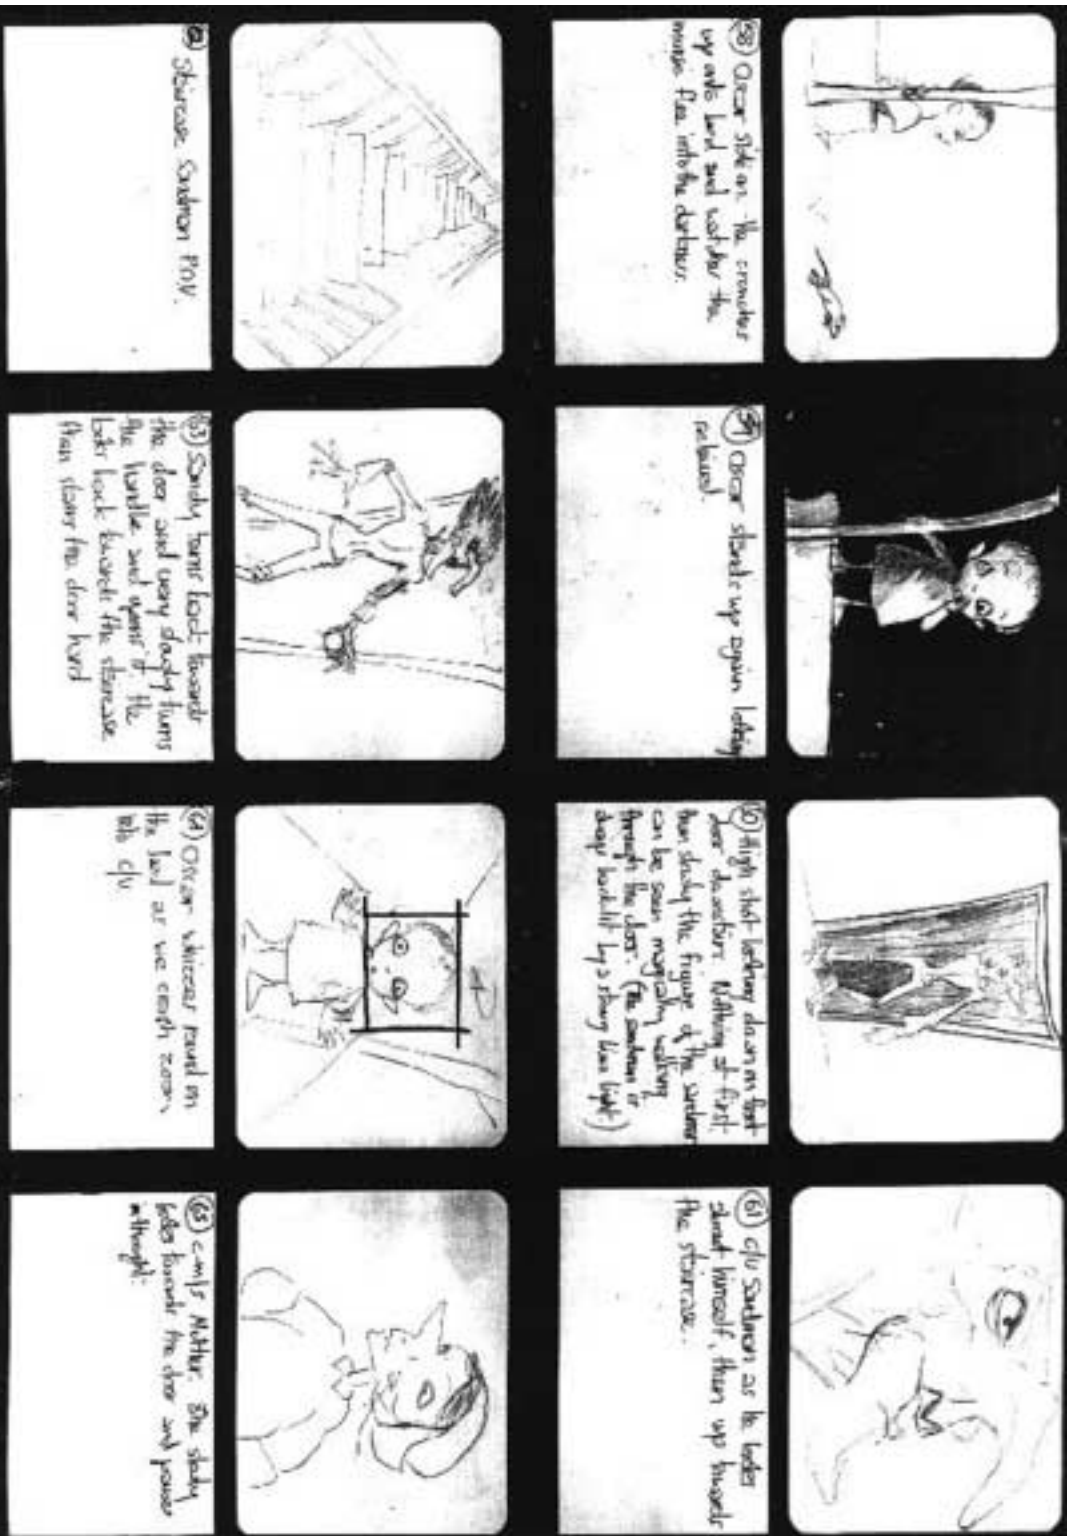 (58) Oscar slides on the crouches
up onto land and watches the
flee into the darkness.
(59) Oscar stands up again looking
relieved.
(60) High shot looking down on front
door downstairs. Nothing at first,
then slowly the figure of the sandman
can be seen magically walking
through the door. (The sandman is
always backlit by a strong blue light.)
(61) c/u Sandman as he looks
about himself, then up towards
the staircase.
Staircase Sandman P.O.V.
(63) Sandy turns back towards
the door and very slowly turns
the handle and opens it. He
looks back towards the staircase
then slams the door hard
(64) Oscar whizzes round on
the as we crash zoom
into c/u
(65) c-m/s Mother. She slowly
looks towards the door and pauses
in thought.